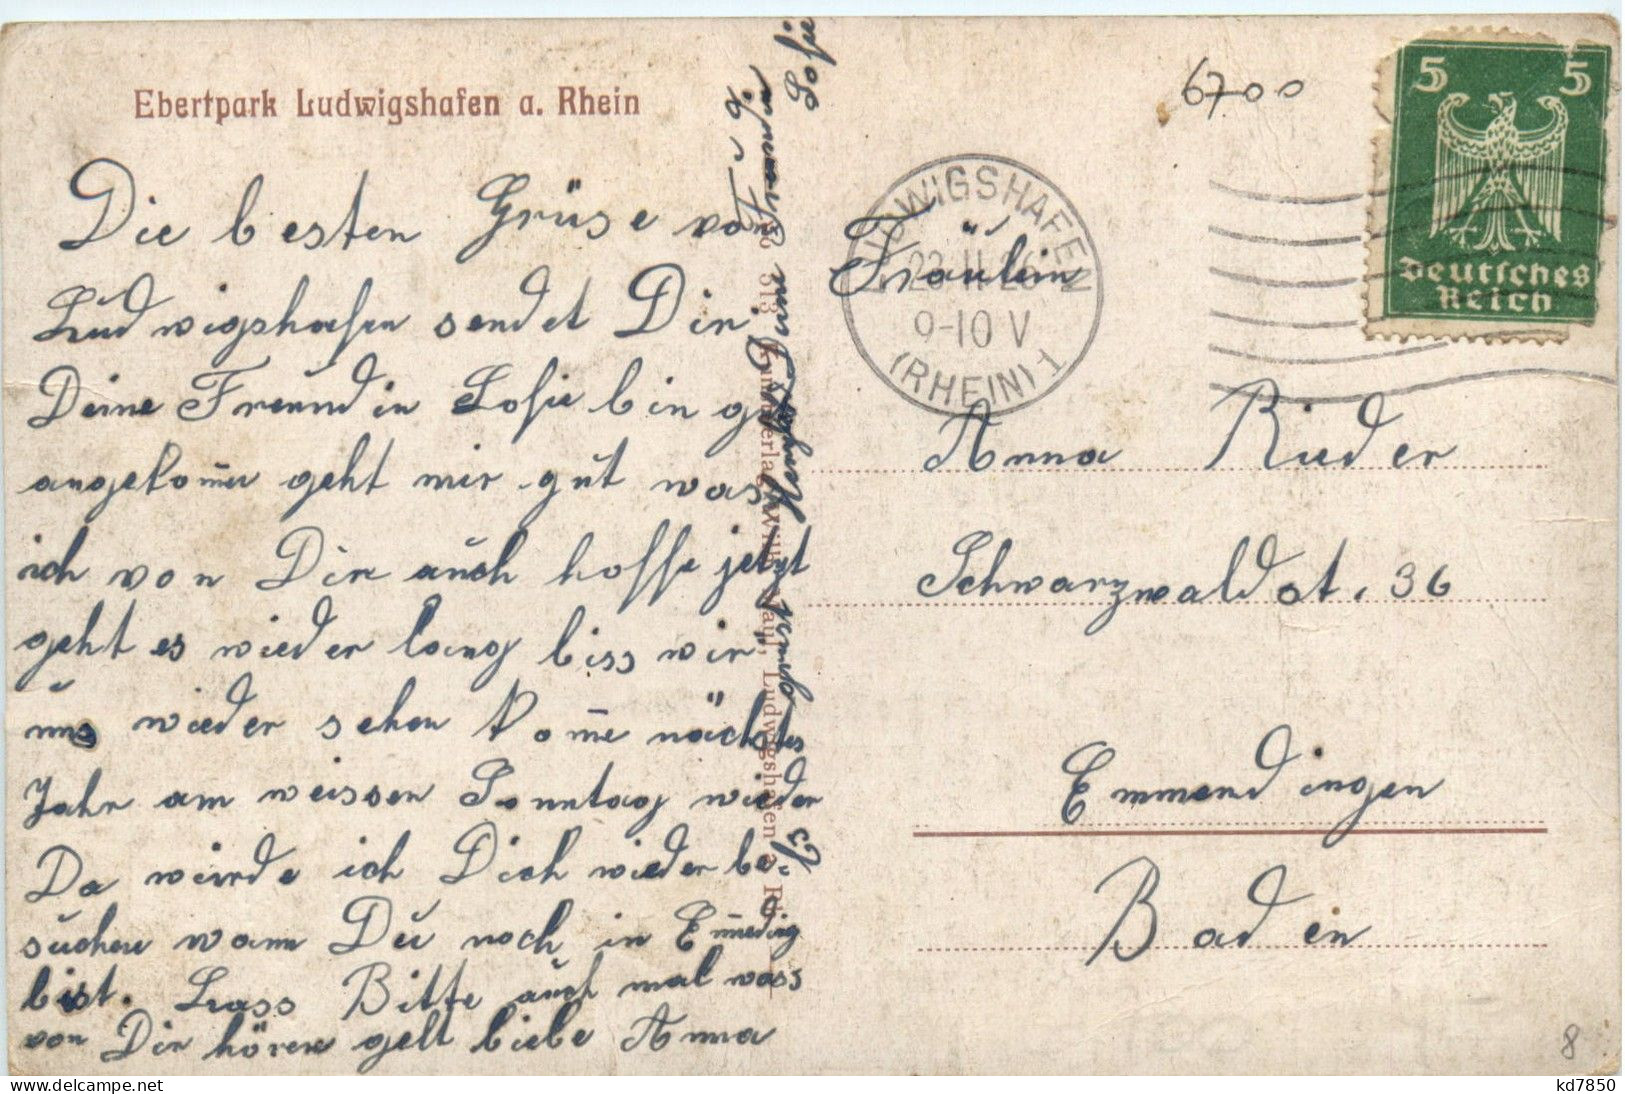 Ebertpark Ludwigshafen a. Rhein
Die besten Grüse von
Ludwigshafen sendet Dir
Deine Freundin Sofie bin gut
angekom̅en geht mir gut was
ich von Dir auch hoffe jetzt
geht es wieder lang biss wir
uns wieder sehen kom̅e nächstes
Jahr am weissen Sonntag wieder
Da würde ich Dich wieder be-
suchen wann Du noch in Em̅eding
bist. Lass Bitte auch mal wass
von Dir hören gelt liebe Anna
Es grüsst Deine
Freundin
Sofie
Kunstverlag Wilh. Ludwigshafen a. Rh.
6700
5 5
Deutsches
Reich
LUDWIGSHAFEN
23.11.26
9-10 V
(RHEIN) 1
Fräulein
Anna Rieder
Schwarzwaldst. 36
Emmendingen
Baden
8
kd7850